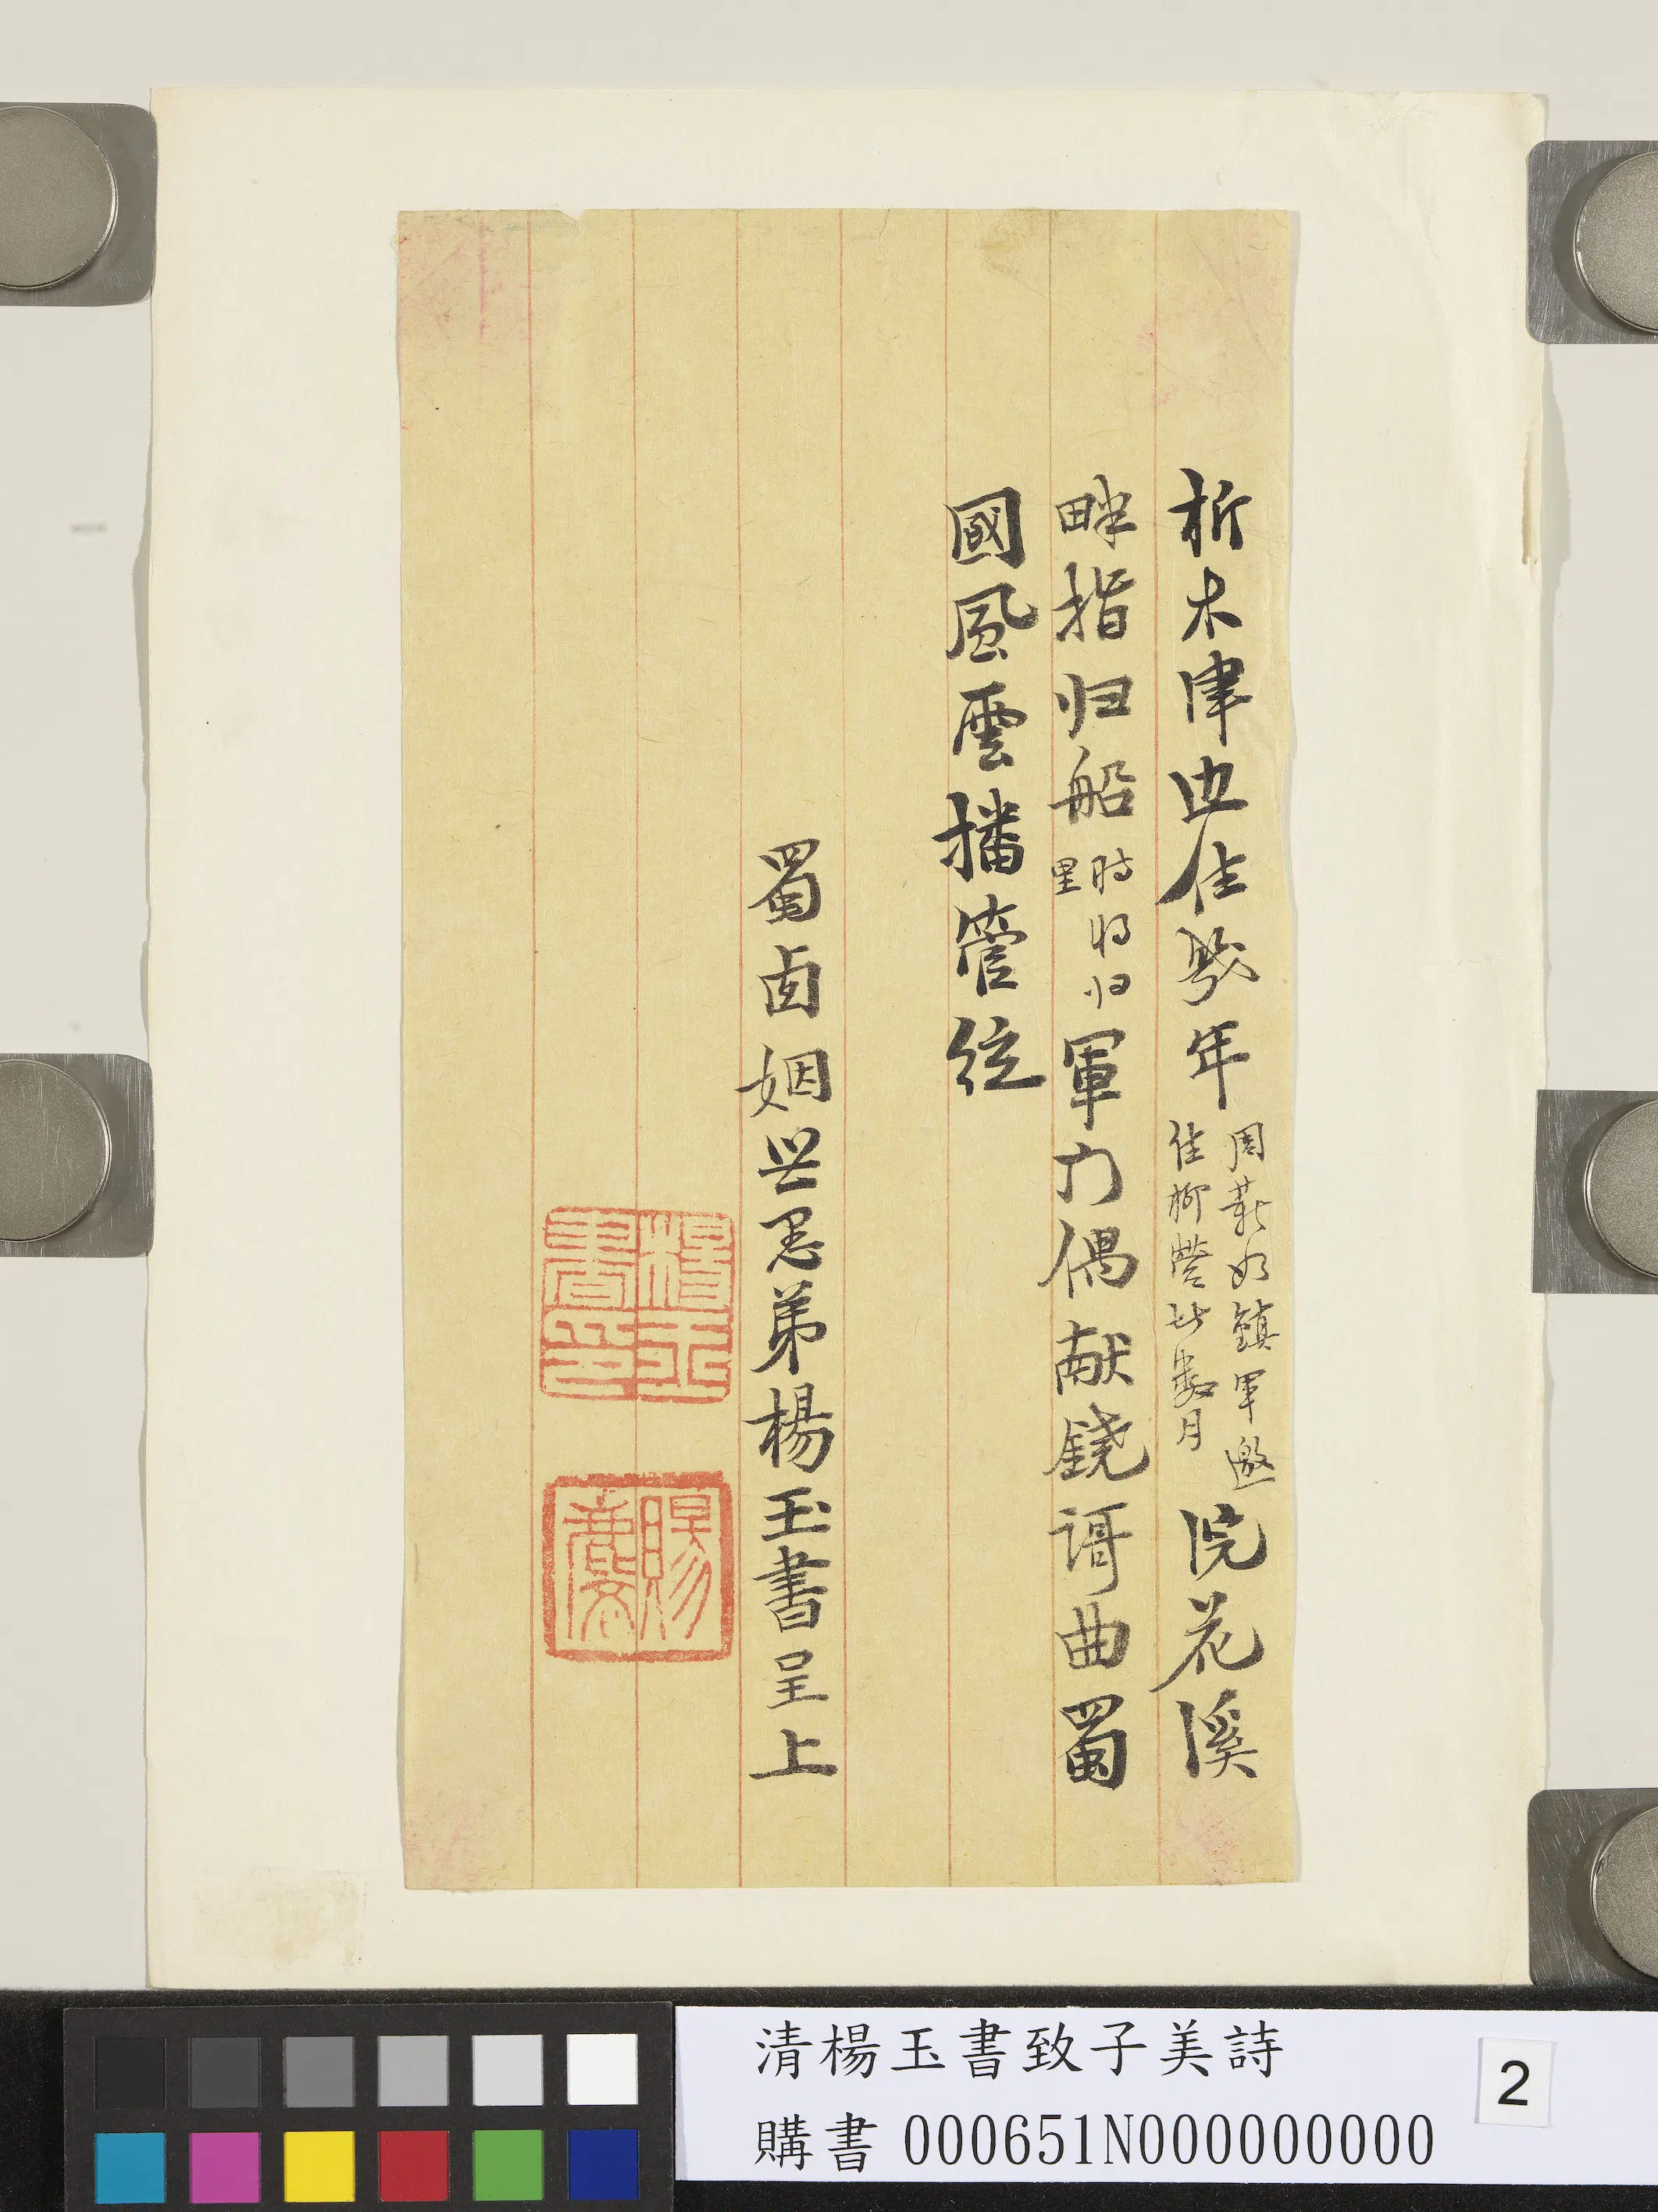 析木津边住幾年周薪如鎮軍邀
住柳營此數月浣花溪
畔指归船時将归
里軍力偶献鐃謌曲蜀
國風雲播管絃
蜀卤姻世愚弟楊玉書呈上
楊玉書印
賜麐
清楊玉書致子美詩
購書 000651N000000000
2